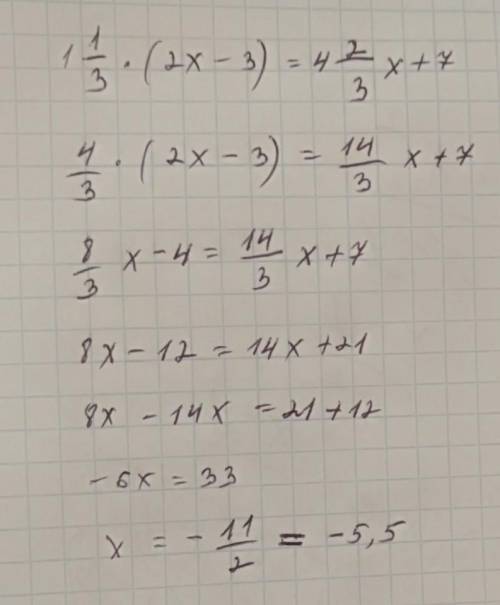 1 1/3 · (2x - 3) = 4 2/3 x + 7
4/3 · (2x - 3) = 14/3 x + 7
8/3 x - 4 = 14/3 x + 7
8x - 12 = 14x + 21
8x - 14x = 21 + 12
-6x = 33
x = - 11/2 = -5,5